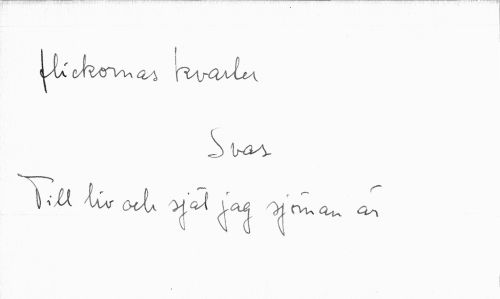 flickornas kvarter
Svas
Till liv och själ jag sjöman är